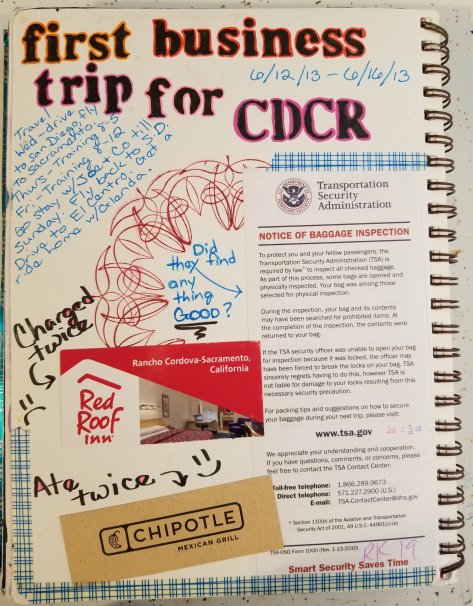 first business
trip for CDCR
6/12/13 - 6/16/13
Travel
Wed - drive, fly
to San Diego,
to Sacramento. 8-5
Thurs - Training
Fri - Training 8-12
stay w/ till
Sunday. Fly back to S.D.
Drive to El Centro. Get a
ride home w/
Did
they find
any
thing
GOOD?
Charged
twice
Rancho Cordova-Sacramento,
California
Red
Roof
Inn
Ate
twice
CHIPOTLE
MEXICAN GRILL
Transportation
Security
Administration
NOTICE OF BAGGAGE INSPECTION
To protect you and your fellow passengers, the
Transportation Security Administration (TSA) is
required by law* to inspect all checked baggage.
As part of this process, some bags are opened and
physically inspected. Your bag was among those
selected for physical inspection.
During the inspection, your bag and its contents
may have been searched for prohibited items. At
the completion of the inspection, the contents were
returned to your bag.
If the TSA security officer was unable to open your bag
for inspection because it was locked, the officer may
have been forced to break the locks on your bag. TSA
sincerely regrets having to do this, however TSA is
not liable for damage to your locks resulting from this
necessary security precaution.
For packing tips and suggestions on how to secure
your baggage during your next trip, please visit:
www.tsa.gov
We appreciate your understanding and cooperation.
If you have questions, comments, or concerns, please
feel free to contact the TSA Contact Center:
Toll-free telephone: 1.866.289.9673
Direct telephone: 571.227.2900 (U.S.)
E-mail: TSA-ContactCenter@dhs.gov
* Section 110(b) of the Aviation and Transportation
Security Act of 2001, 49 U.S.C. 44901(c)-(e)
TSA-050 Form 1000 (Rev. 1-13-2010)
RK 19
Smart Security Saves Time